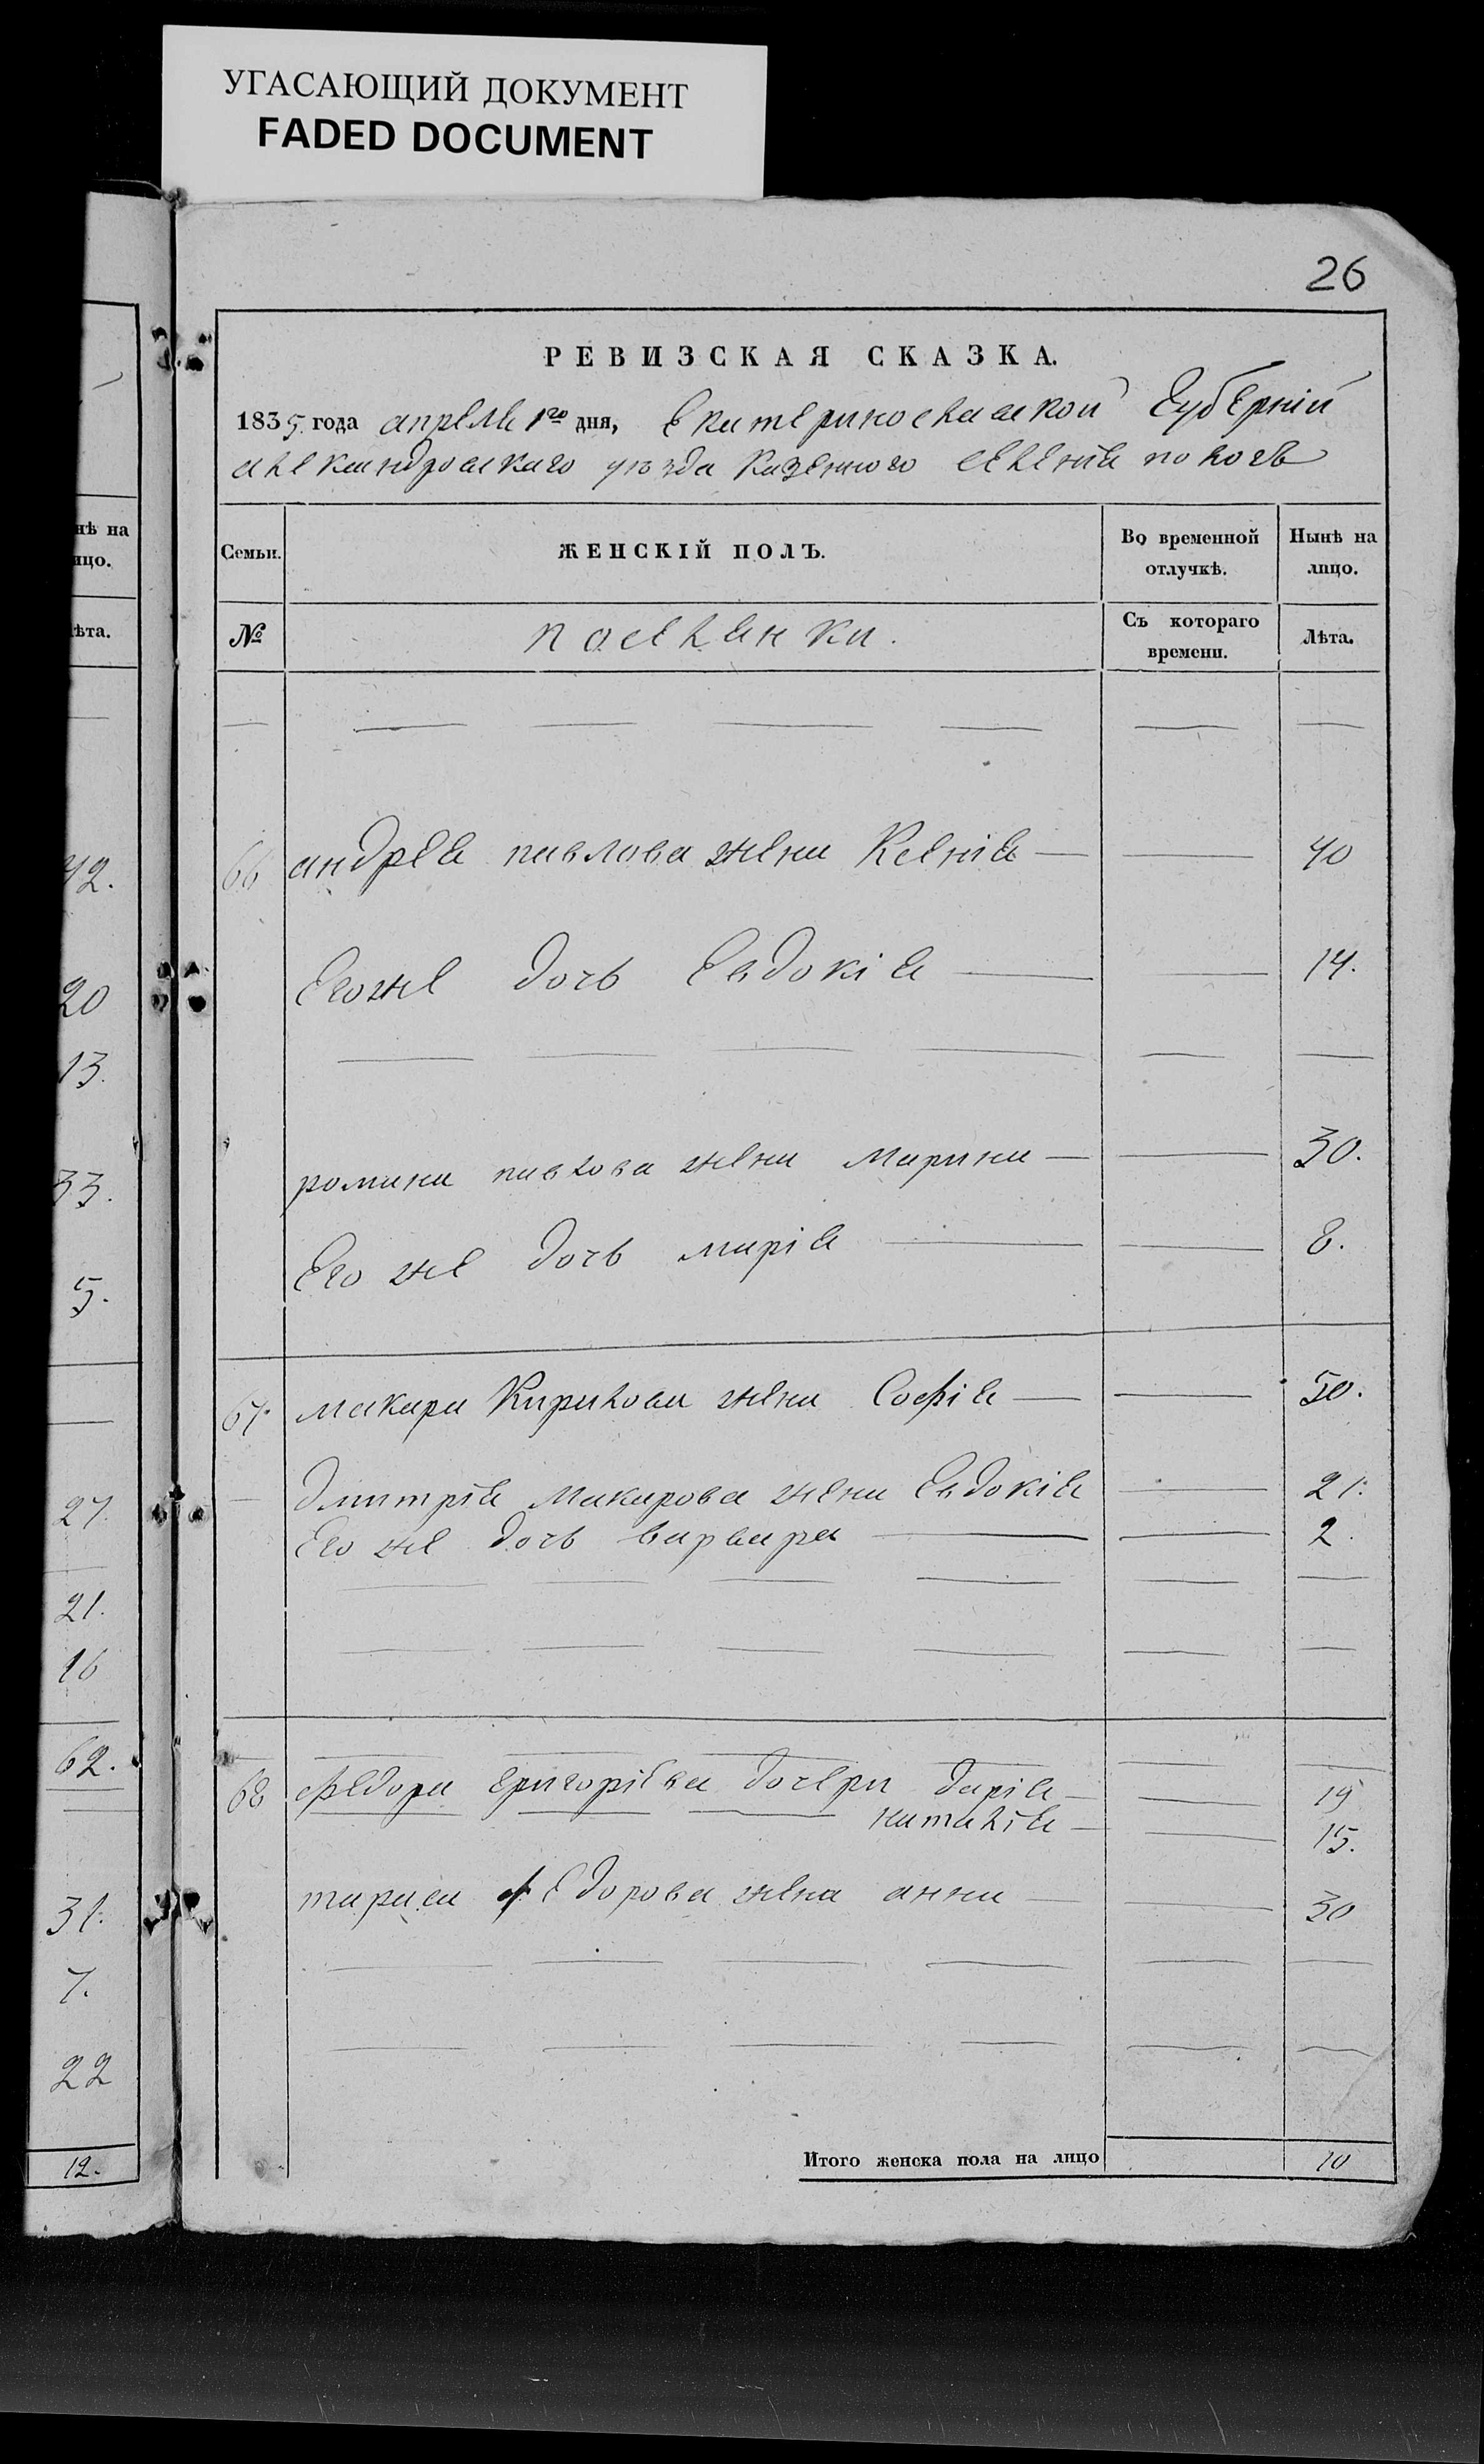 УГАСАЮЩИЙ ДОКУМЕНТ
FADED DOCUMENT
26
РЕВИЗСКАЯ СКАЗКА.
1835 года апреля 1го дня, Екатеринославской Губерніи
александровскаго уѣзда Казенного селенія пологъ
нѣ на
ицо.
ѣта.
42.
20
13.
33.
5.
27.
21.
16
62.
31.
7.
22
12.
Семьи. ЖЕНСКІЙ ПОЛЪ. Во временной отлучкѣ. Нынѣ на лицо.
№ поселянки. Съ котораго времени. Лѣта.
66 андрея павлова жена Ксенія 40
Егоже дочь Евдокія 14.
романа павлова жена Марина 30.
Его же дочь марія 8.
67. макара Кирилова жена Софія 50.
дмитрія Макарова жена Евдокія 21.
Его же дочь варвара 2.
68 федора григоріева дочери дарія 19
наталія 15.
тараса федорова жена анна 30
Итого женска пола на лицо 10